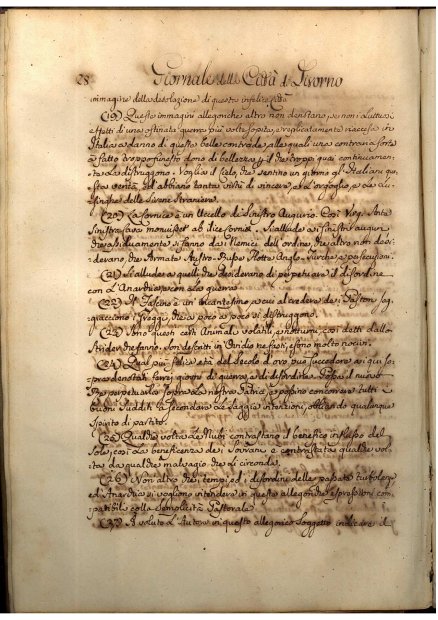 28. Giornale della Città di Livorno
immagine della desolazione di questa infelice Città
(19) Queste immagini allegoriche altro non denotano, se non i luttuosi
effetti di una ostinata guerra più volte sopita, e replicatamente riaccesa in
Italia a danno di queste belle contrade, alle quali una contraria sorte
à fatto troppo funesto dono di bellezza, per il che troppi guai continuamen-
te la distruggono. Voglia il Cielo, che sentino un giorno gl'Italiani que-
sta verità, ed abbiano tanta virtù di vincere, e l'orgoglio, e le
lusinghe delle Sirene Straniere.
(20) La Cornice è un Uccello di Sinistro Augurio. Così Virg. Ante
sinistra cava monuisset ab ilice cornix. Si allude a' sinistri auguri
che assiduamente si fanno da' Nemici dell'ordine, che altro non desi-
derano, che Armate Austro-Russe, Flotte Anglo-Turche, e persecuzioni.
(21) Si allude a quelli, che desiderano di perpetuare il disordine
con l'Anarchia, e con la guerra.
(22) Il Fascino è un incantesimo, a cui al credere de' Pastori sog-
giacciono i Greggi, che a poco a poco si distruggono.
(23) Sono questi certi Animali volatili, e notturni, così detti dallo
Stridere che fanno. Son descritti in Ovidio ne' fasti, e sono molto nocivi.
(24) Qual più felice età del Secolo d'oro può succedere ai qui so-
pra denotati ferrei giorni di guerra, e di disordine. Possa il nuovo
Re perpetuarlo sopra la nostra Patria, e possino concorrere tutti i
buoni Sudditi a secondare le saggie intenzioni, obliando qualunque
spirito di partito.
(25) Qualche volta le Nubi contrastano il benefico influsso del
Sole, così la beneficenza de' Sovrani è contrastata qualche vol-
ta da qualche malvagio che li circonda.
(26) Non altro che i tempi, ed i disordini delle passate turbolenze
ed Anarchia si vogliono intendere in queste allegoriche espressioni com-
patibili colla semplicità Pastorale.
(27) À voluto l'Autore in questo allegorico Soggetto indicare il